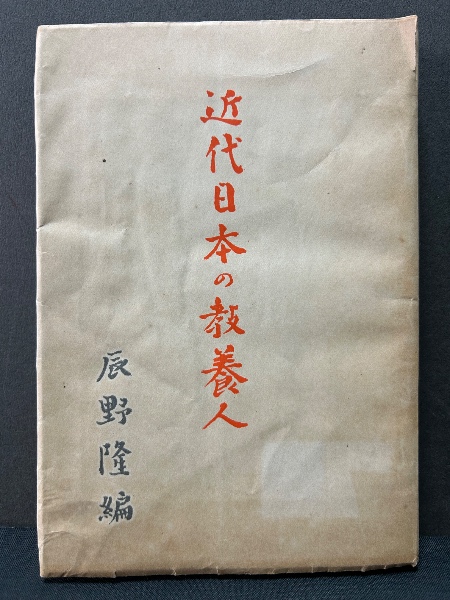 近代日本の教養人
辰野隆編